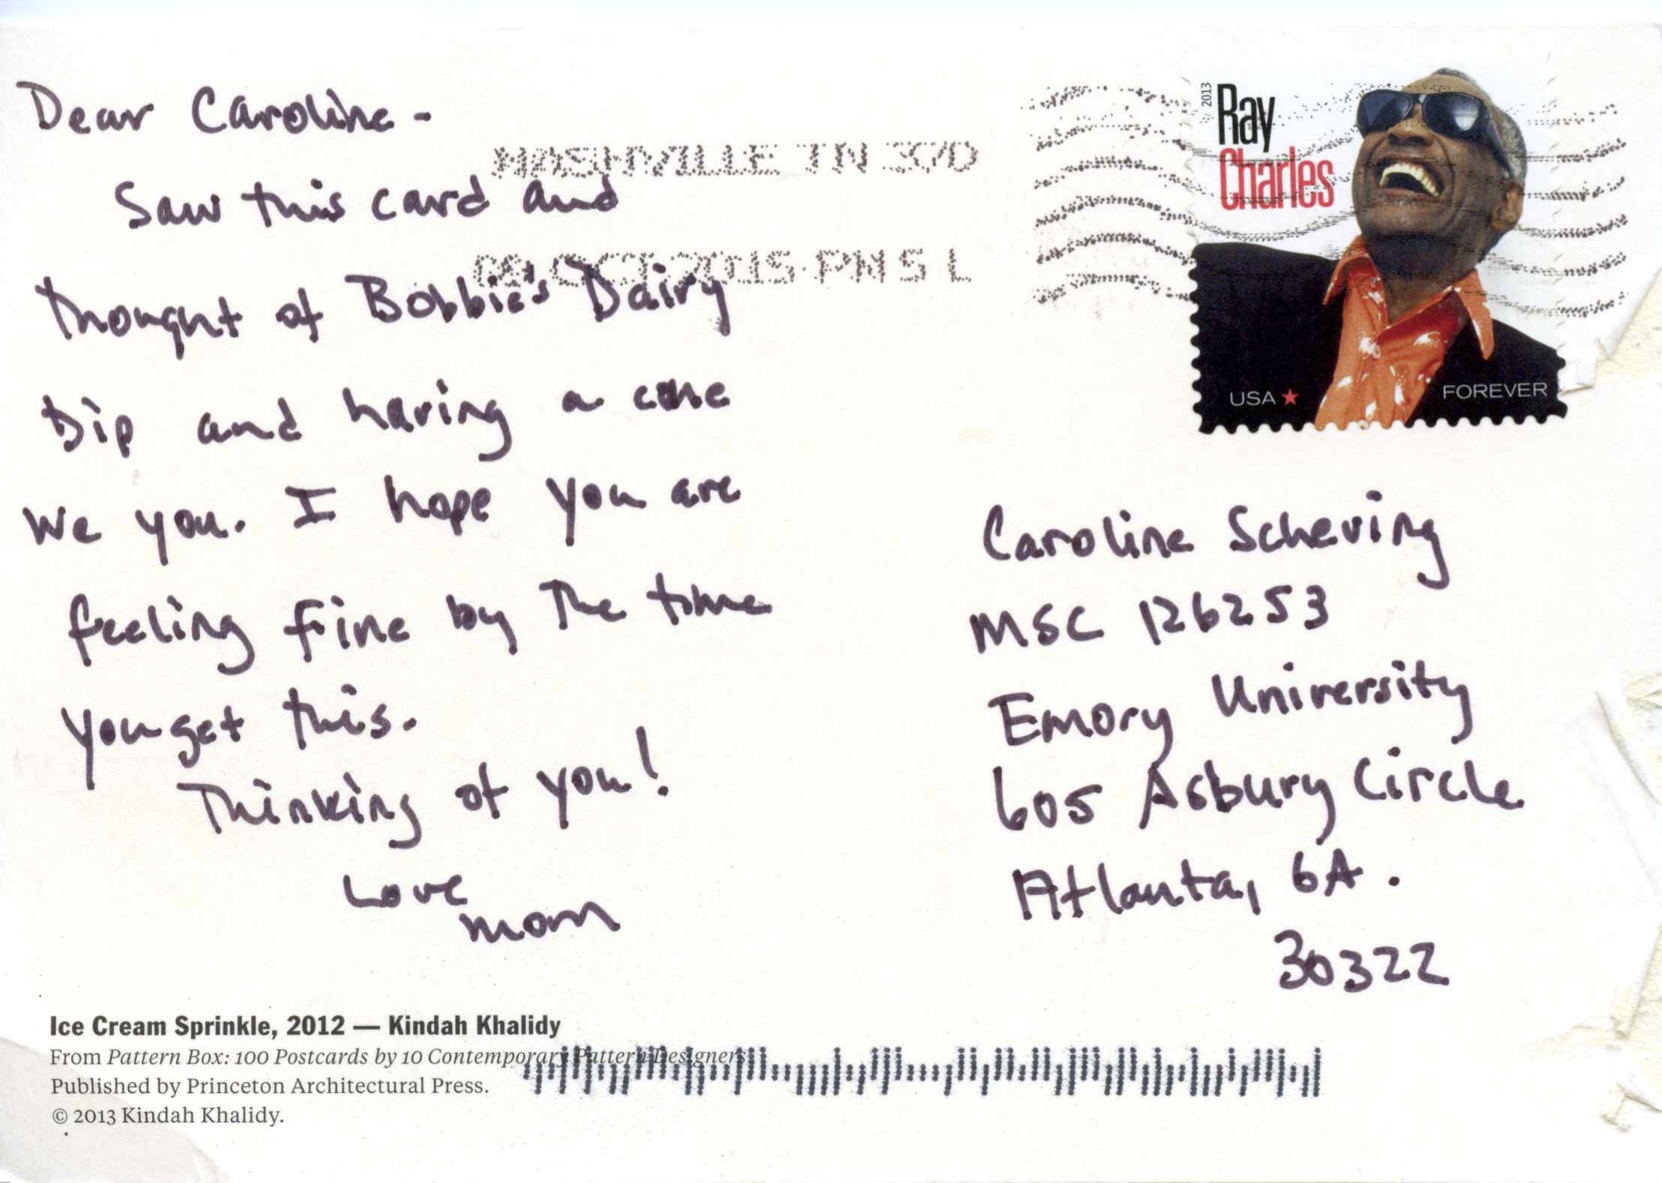 Dear Caroline -
Saw this card and
thought of Bobbie's Dairy
Dip and having a cone
We you. I hope you are
feeling fine by The time
you get this.
Thinking of you!
Love
mom
NASHVILLE TN 370
OCT 2015 PM 5 L
2013
Ray
Charles
USA
FOREVER
Caroline Scheving
MSC 126253
Emory University
605 Asbury Circle
Atlanta, GA.
30322
Ice Cream Sprinkle, 2012 — Kindah Khalidy
From Pattern Box: 100 Postcards by 10 Contemporary Pattern Designers
Published by Princeton Architectural Press.
© 2013 Kindah Khalidy.